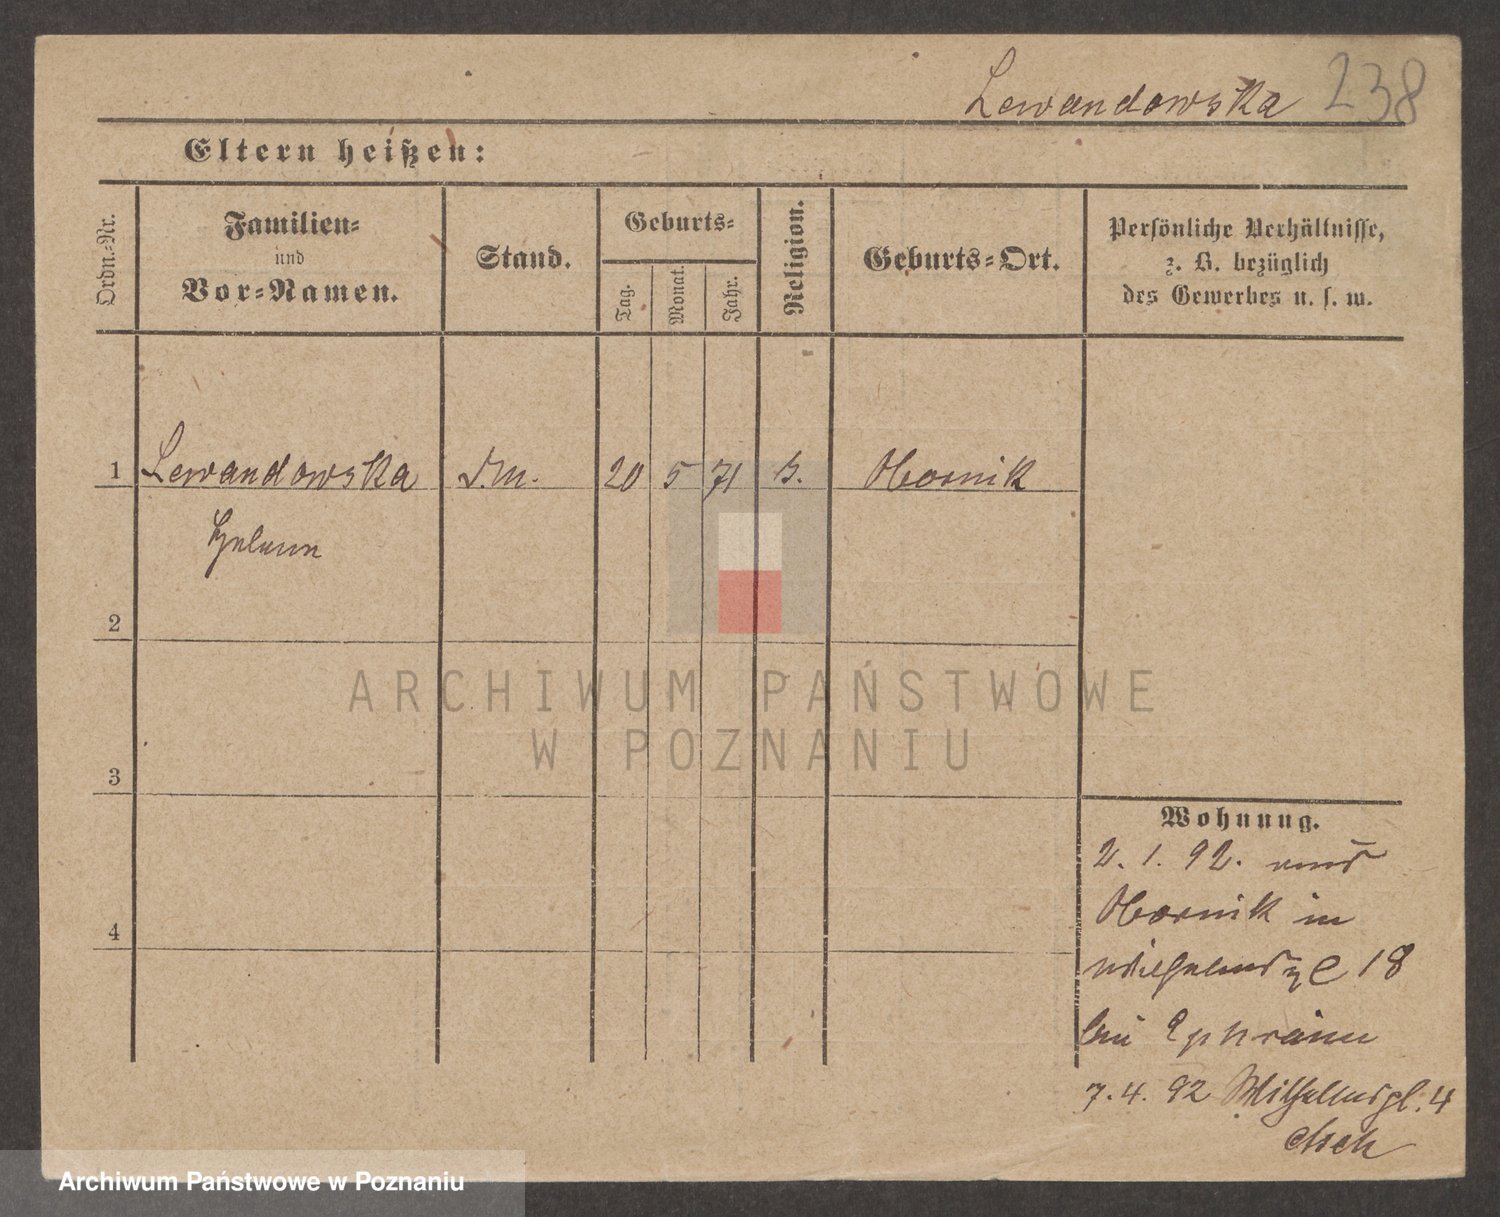 Lewandowska 238
Eltern heißen:
Ordn.-Nr.
Familien-
und
Vor-Namen.
Stand.
Geburts-
Tag.
Monat.
Jahr.
Religion.
Geburts-Ort.
Persönliche Verhältnisse,
z. B. bezüglich
des Gewerbes u. s. w.
1 Lewandowska D.M. 20 5 71 k. Obornik
Helene
2
3
4
Wohnung.
2. 1. 92. aus
Obornik in
Wilhelmspl 18
bei Ephraim
7. 4. 92 Wilhelmspl. 4
Asch
ARCHIWUM PAŃSTWOWE
W POZNANIU
Archiwum Państwowe w Poznaniu